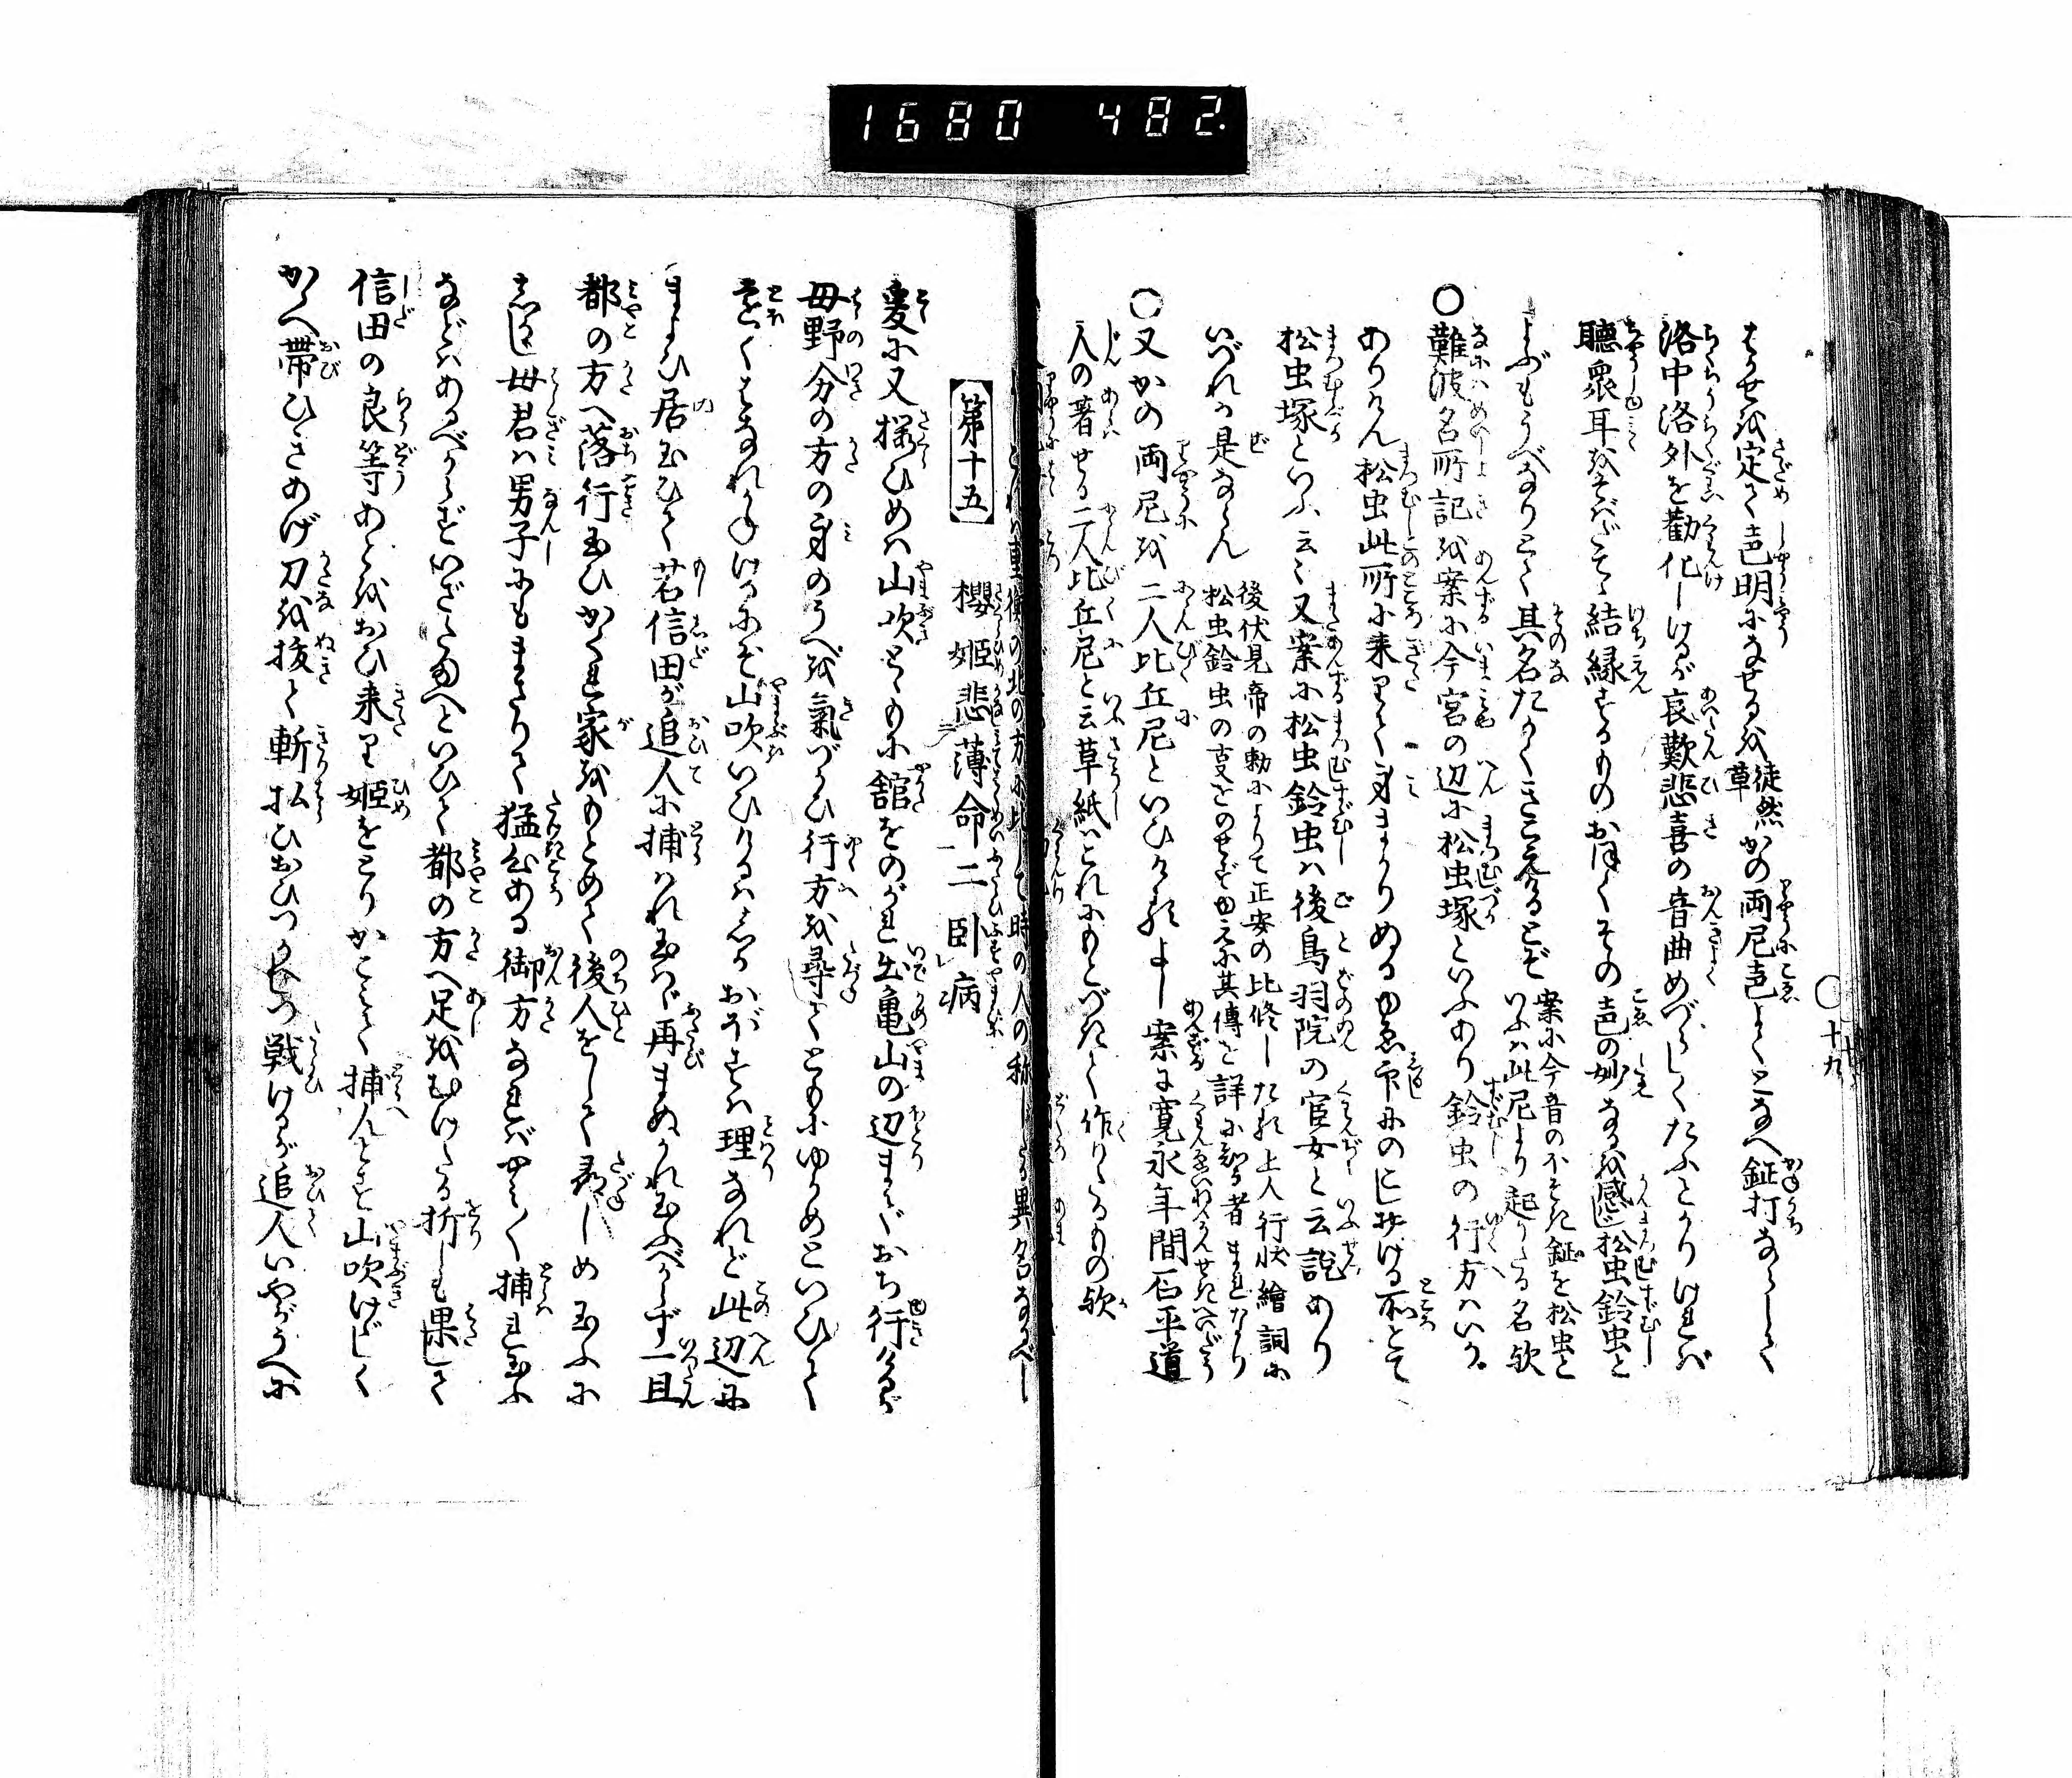 1680 482.
十九
はかせを定て声明になせるを徒然草かの両尼声よくとなへ鉦打ならして
洛中洛外を勧化しけるが哀歎悲喜の音曲めづらしくたふとかりければ
聴衆耳をそばだてゝ結縁するものおほくその声の妙なるを感じ松虫鈴虫と
よぶもうべなりとて其名たかくきこえけるとぞ
案に今昔のふせ鉦を松虫と
いふハ此尼より起りたる名歟
○難波名所記を案に今宮の辺に松虫塚といふあり鈴虫の行方ハいかゞ
ありけん松虫此所に来りて身まかりぬるゆゑ印にのこしける所とて
松虫塚といふ云々又案に松虫鈴虫ハ後鳥羽院の官女と云説あり
いづれか是ならん
後伏見帝の勅によりて正安の比修したる上人行状絵詞に
松虫鈴虫の事をのせずゆゑに其傳を詳に知る者まれなり
○又かの両尼を二人比丘尼といひけるよし案に寛永年間石平道
人の著せる二人比丘尼と云草紙ハこれにもとづきて作りたるもの歟
重衡の北の方に比して時の人の称したる異名なるべし
第十五 櫻姫悲薄命二臥病
爰に又桜ひめハ山吹とゝもに舘をのがれ出亀山の辺までおち行けるが
母野分の方の身のうへを気づかひ行方を尋てともにゆかめといひて
遠くはなれかねけるにぞ山吹いひけるハしかおぼすハ理なれど此辺に
まよひ居玉ひて若信田が追人に捕ハれ玉はゞ再まぬかれ玉ふべからず一旦
都の方へ落行玉ひかくれ家をもとめて後人をして尋しめ玉ふに
しかじ母君ハ男子にもまさりて猛公ある御方なればやはか捕れ玉ふ
などハあるべからずいざたまへといひて都の方へ足をむけたる折しも果して
信田の良等あとをおひ来り姫をとりかこみて捕んとす山吹けはしく
かゝへ帯ひきあげ刀を抜て斬払ひおひつかへしつ戦けるが追人いやがうへに